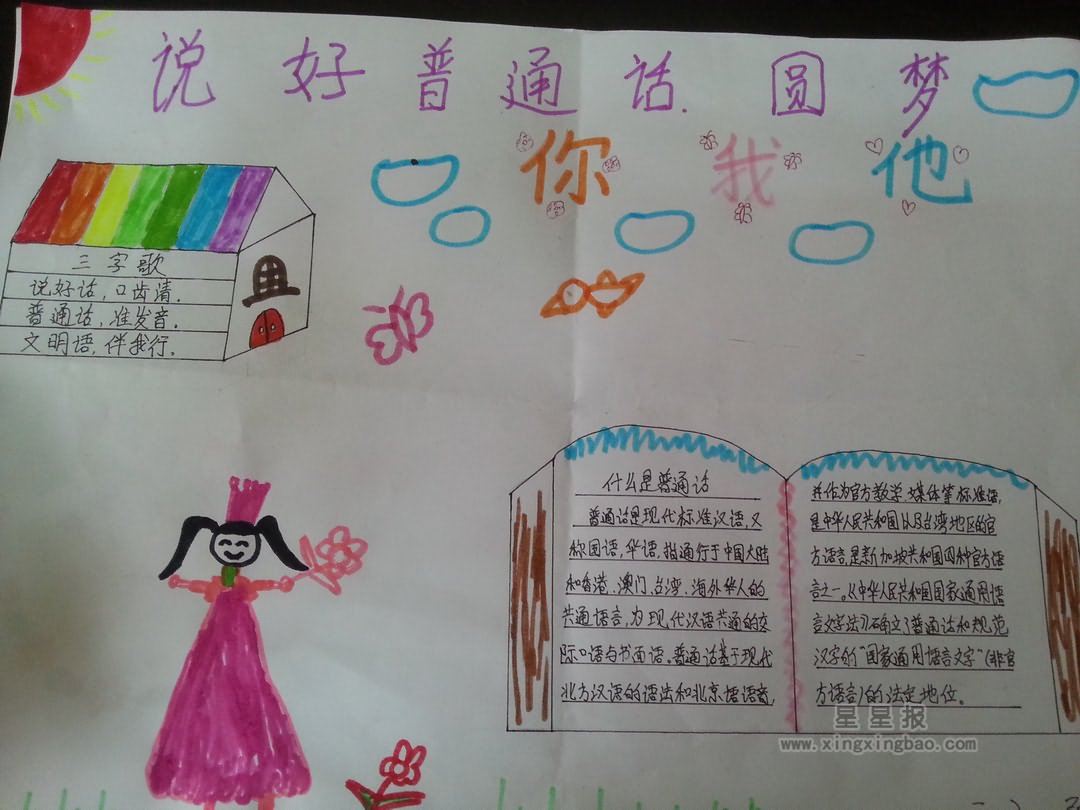 说好普通话.圆梦
你 我 他
三字歌
说好话,口齿清.
普通话,准发音.
文明语,伴我行.
什么是普通话
普通话是现代标准汉语,又
称国语,华语,指通行于中国大陆
和香港、澳门、台湾、海外华人的
共通语言,为现代汉语共通的交
际口语与书面语。普通话基于现代
北方汉语的语法和北京语语音,
并作为官方教学、媒体等标准语,
是中华人民共和国以及台湾地区的官
方语言,是新加坡共和国四种官方语
言之一。《中华人民共和国国家通用语
言文字法》确立了普通话和规范
汉字的"国家通用语言文字"(非官
方语言)的法定地位。
星星报
www.xingxingbao.com